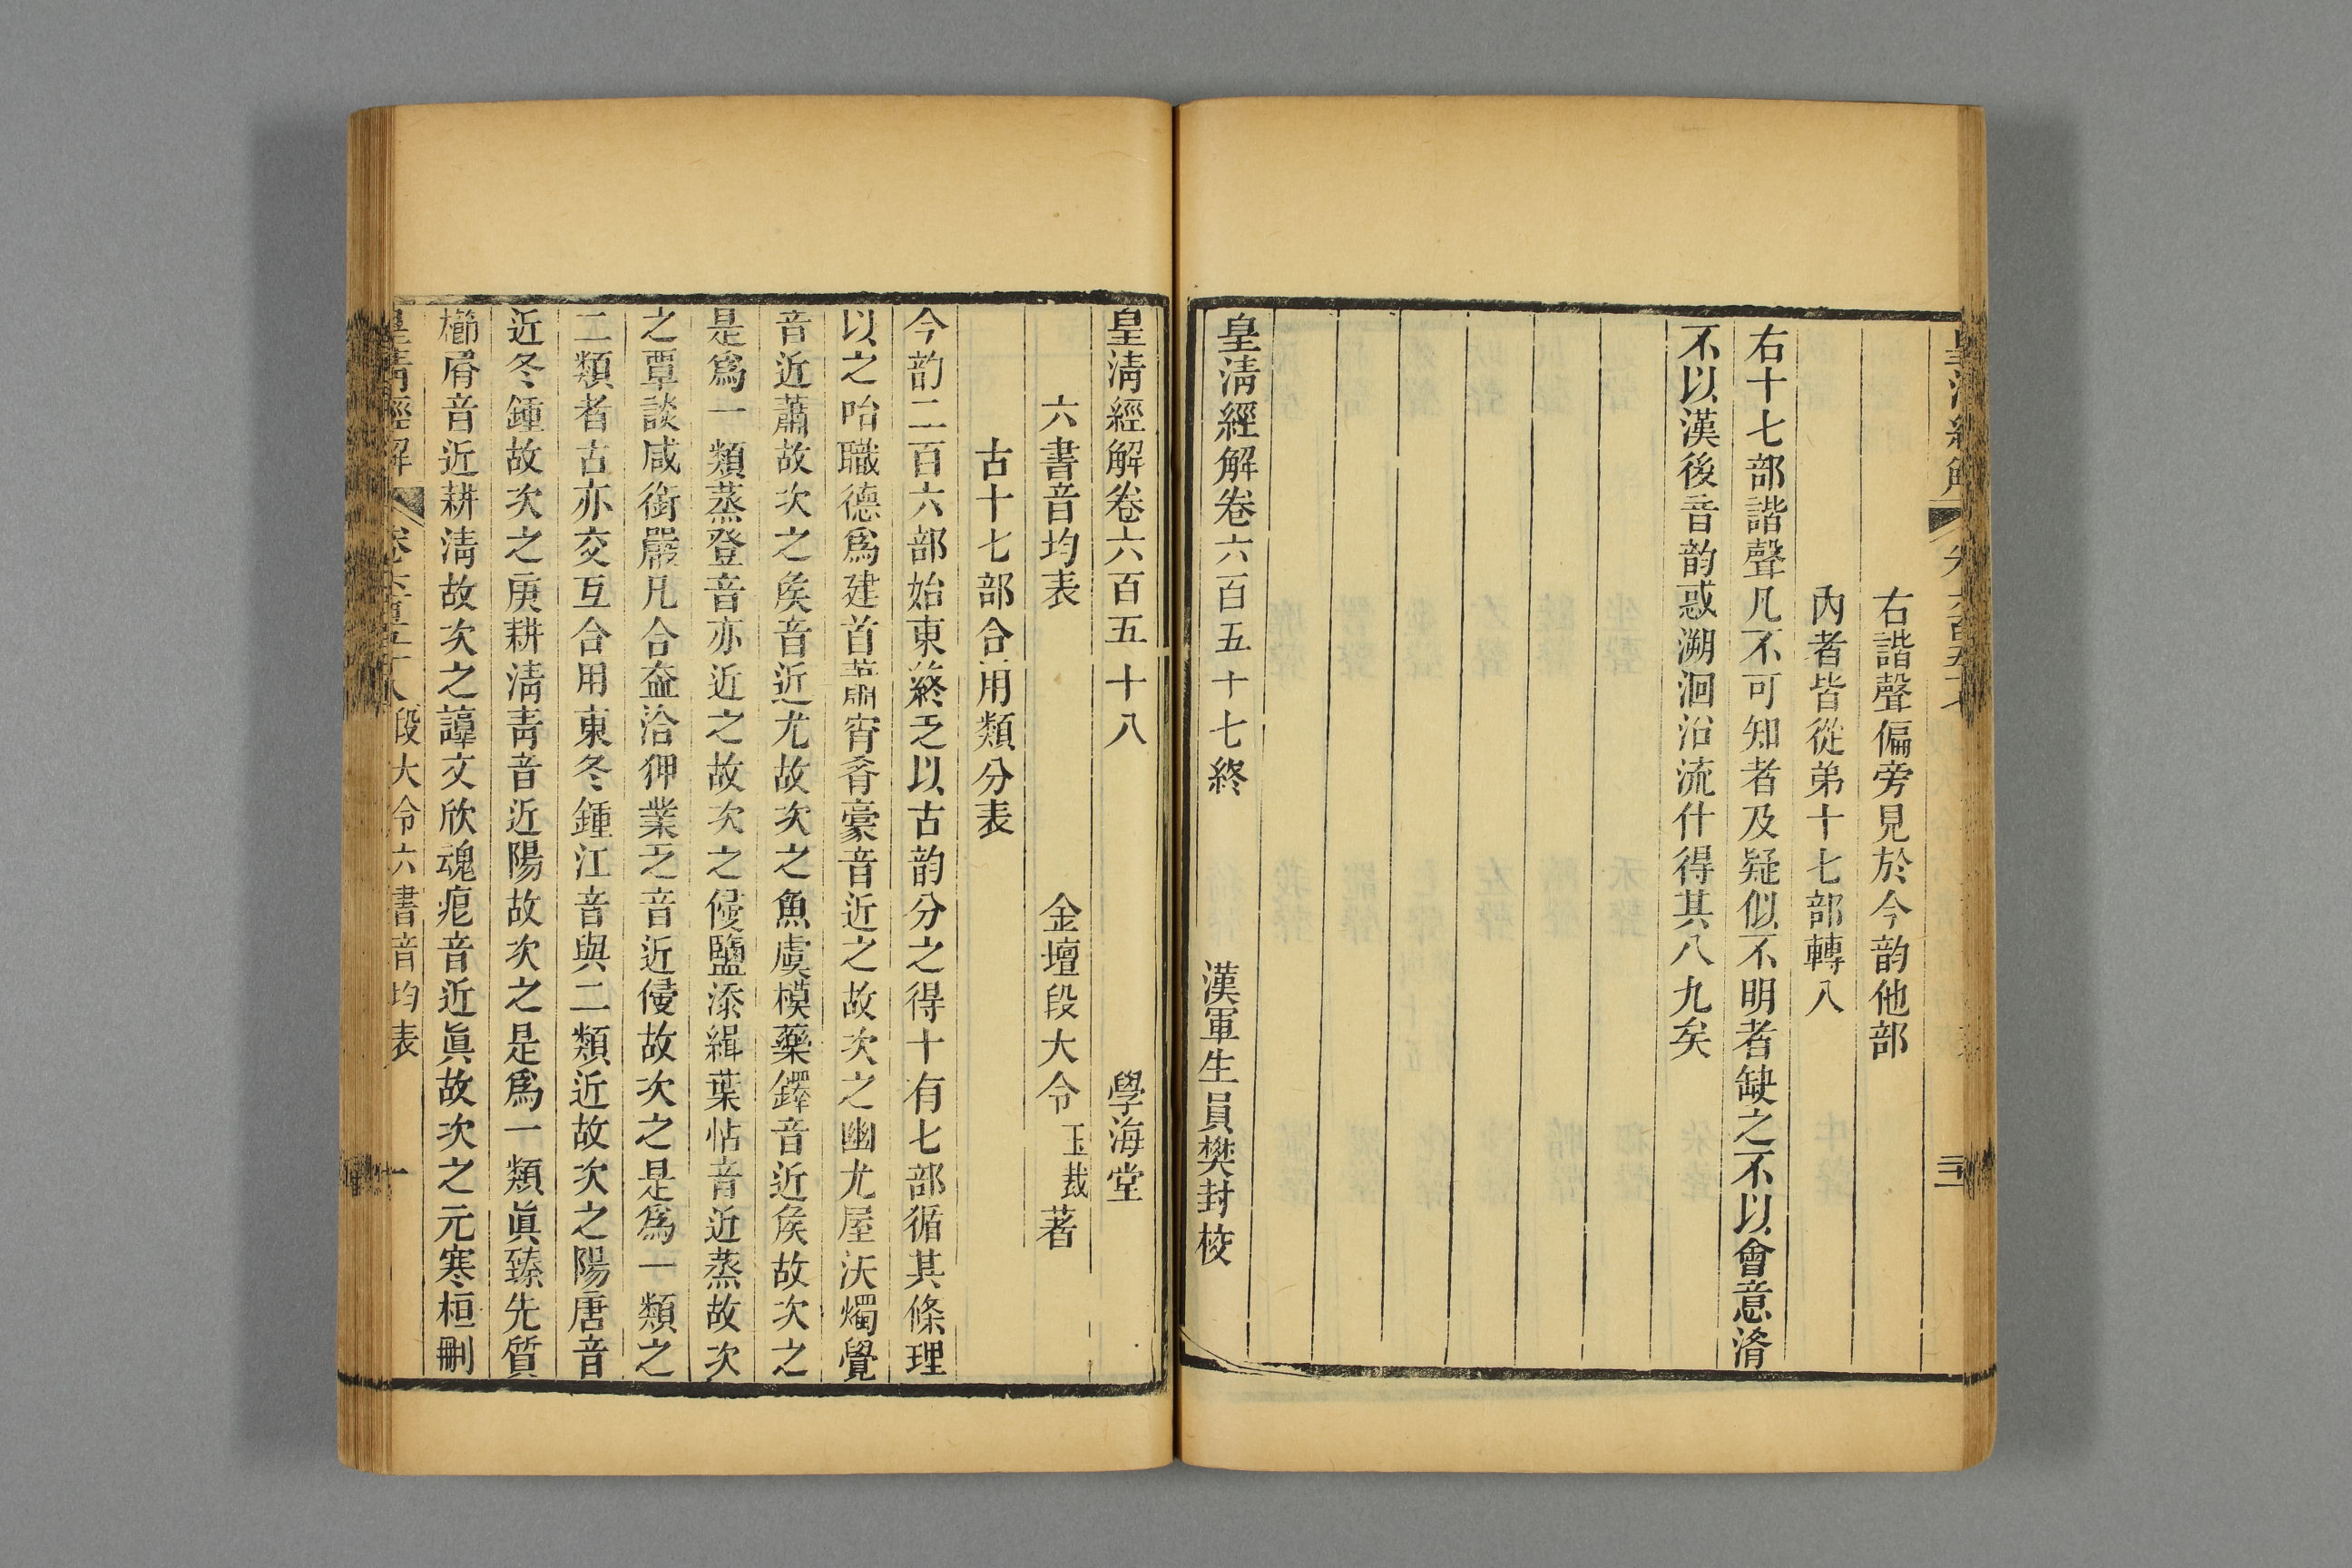 右諧聲偏旁見於今韵他部
內者皆從弟十七部轉入
右十七部諧聲凡不可知者及疑似不明者缺之不以會意淆
不以漢後音韵惑溯洄沿流什得其八九矣
皇淸經解卷六百五十七終
漢軍生員樊封校
皇淸經解卷六百五十八
學海堂
六書音均表
金壇段大令玉裁著
古十七部合用類分表
今韵二百六部始東終乏以古韵分之得十有七部循其條理
以之咍職德爲建首蕭宵肴豪音近之故次之幽尤屋沃燭覺
音近蕭故次之矦音近尤故次之魚虞模藥鐸音近矦故次之
是爲一類蒸登音亦近之故次之侵鹽添緝葉怗音近蒸故次
之覃談咸銜嚴凡合盍洽狎業乏音近侵故次之是爲一類之
二類者古亦交互合用東冬鍾江音與二類近故次之陽唐音
近冬鍾故次之庚耕淸靑音近陽故次之是爲一類眞臻先質
櫛屑音近耕淸故次之諄文欣魂痕音近眞故次之元寒桓刪
皇淸經解
段大令六書音均表
一